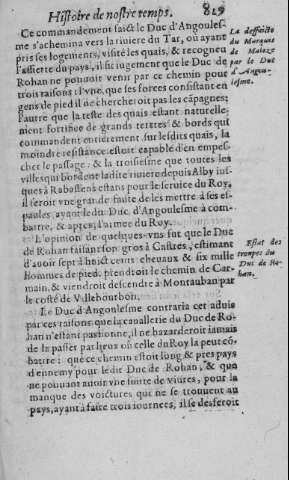 Histoire de nostre temps. 829
Ce commandement faict le Duc d'Angoules-
me s'achemina vers la riuiere du Tar, où ayant
pris ses logements, visité les quais, & recogneu
l'assiette du pays, il fit iugement que le Duc de
Rohan ne pouuoit venir par ce chemin pour
trois raisons: l'vne, que ses forces consistant en
gens de pied il ne chercheroit pas les cāpagnes;
l'autre que la teste des quais estant naturelle-
ment fortifiee de grands tertres & bords qui
commandent entieremēt sur lesdits quais, la
moindre resistance estoit capable d'en empes-
cher le passage: & la troisiesme que toutes les
villes qui bordent ladite riuiere depuis Alby ius-
ques à Rabastens estans pour le seruice du Roy,
il seroit vne grande faute de les mettre à ses es-
paules, ayant ledit Duc d'Angoulesme à com-
battre, & apres, l'armee du Roy.
L'opinion de quelques-vns fut que le Duc
de Rohan faisant son gros à Castres, estimant
d'auoir sept à huict cents cheuaux & six mille
hommes de pied, prendroit le chemin de Car-
main, & viendroit descendre à Montauban par
le costé de Villebourbon.
Le Duc d'Angoulesme contraria cet aduis
par ces raisons que la caualerie du Duc de Ro-
han n'estant pas bonne, il ne hazarderoit iamais
de la passer par lieux où celle du Roy la peut cō-
batre: que ce chemin estoit long & pres pays
d'ennemy pour ledit Duc de Rohan, & que
ne pouuant auoir vne suitte de viures, pour la
manque des voictures qui ne se trouuent au
pays, ayant à faire trois iournees, il se desferoit
La deffaicte
du Marquis
de Malauze
par le Duc
d'Angou-
lesme.
Estat des
troupes du
Duc de Ro-
han.